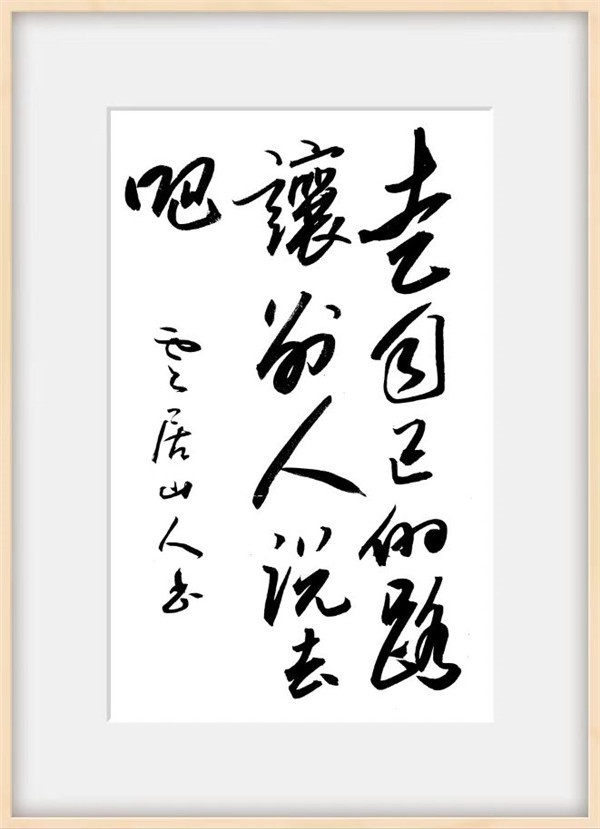 走自己的路
讓別人说去
吧
雲居山人书